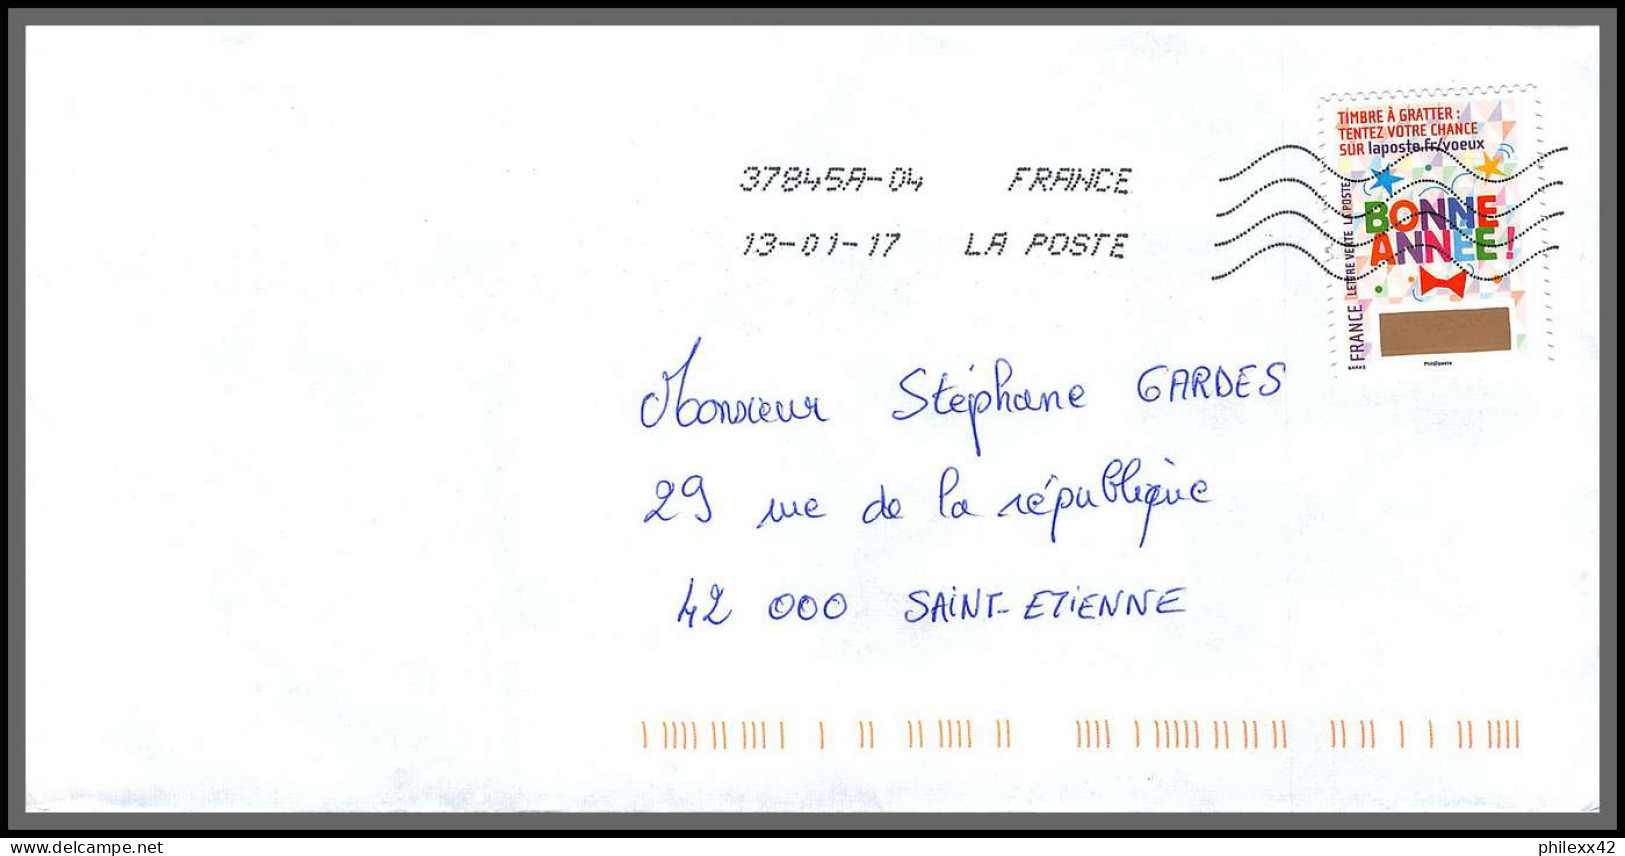 TIMBRE À GRATTER :
TENTEZ VOTRE CHANCE
SUR laposte.fr/voeux
37845A-04 FRANCE
13-01-17 LA POSTE
BONNE
ANNÉE !
FRANCE LETTRE VERTE LA POSTE
Phil@poste
Monsieur Stéphane GARDES
29 rue de la république
42 000 SAINT-ETIENNE
delcampe.net
philexx42